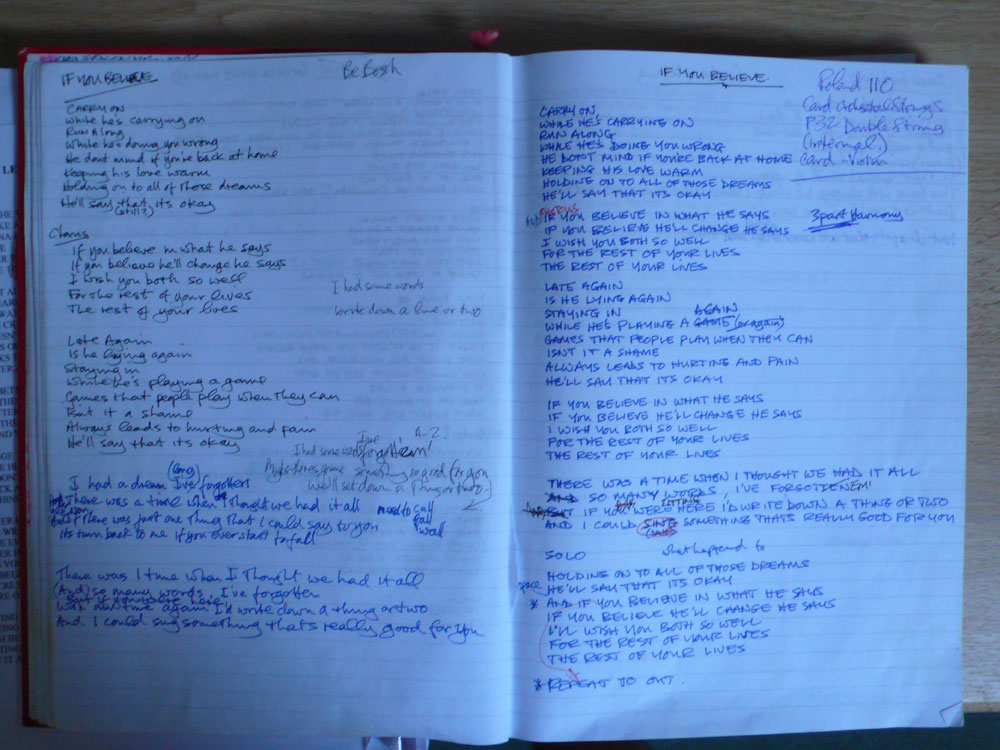 IF YOU BELIEVE
CARRY ON
While he's carrying on
RUN Along
While he's doing you wrong
He dont mind if you're back at home
Keeping his love warm
Holding on to all of those dreams
He'll say that its okay
(still?)
Chorus
If you believe in what he says
If you believe he'll change he says
I wish you both so well
For the rest of your lives
The rest of your lives
I had some words
write down a line or two
Late Again
Is he lying again
Staying in
While he's playing a game
Games that people play when they can
Isn't it a shame
Always leads to hurting and pain
He'll say that its okay
I've A-Z
I had some words forgotten
so good for you
We'll set down a thing or two
(songs)
I had a dream I've forgotten
There was a time when I thought we had it all
need to call
fall
wall
There was just one thing that I could say to you
Its turn back to me if you ever start to fall
There was 1 time when I thought we had it all
(And) so many words I've forgotten
But if you were here
was our time again I'd write down a thing or two
And I could sing something that's really good for you
IF YOU BELIEVE.
Roland 110
Card Orchestral Strings
P32 Double Strings
(Internal)
Card - Violin
CARRY ON
WHILE HE'S CARRYING ON
RUN ALONG
WHILE HE'S DOING YOU WRONG
HE DON'T MIND IF YOU'RE BACK AT HOME
KEEPING HIS LOVE WARM
HOLDING ON TO ALL OF THOSE DREAMS
HE'LL SAY THAT ITS OKAY
CHORUS
IF YOU BELIEVE IN WHAT HE SAYS
3 part Harmony
IF YOU BELIEVE HE'LL CHANGE HE SAYS
I WISH YOU BOTH SO WELL
FOR THE REST OF YOUR LIVES
THE REST OF YOUR LIVES
LATE AGAIN
IS HE LYING AGAIN
STAYING IN AGAIN
WHILE HE'S PLAYING A GAME (or again)
GAMES THAT PEOPLE PLAY WHEN THEY CAN
ISNT IT A SHAME
ALWAYS LEADS TO HURTING AND PAIN
HE'LL SAY THAT ITS OKAY
IF YOU BELIEVE IN WHAT HE SAYS
IF YOU BELIEVE HE'LL CHANGE HE SAYS
I WISH YOU BOTH SO WELL
FOR THE REST OF YOUR LIVES
THE REST OF YOUR LIVES
THERE WAS A TIME WHEN I THOUGHT WE HAD IT ALL
AND SO MANY WORDS, I'VE FORGOTTEN
BUT IF YOU WERE HERE I'D WRITE DOWN A THING OR TWO
AND I COULD SING SOMETHING THAT'S REALLY GOOD FOR YOU
SOLO
what happened to
HOLDING ON TO ALL OF THOSE DREAMS
HE'LL SAY THAT ITS OKAY
* AND IF YOU BELIEVE IN WHAT HE SAYS
IF YOU BELIEVE HE'LL CHANGE HE SAYS
I'LL WISH YOU BOTH SO WELL
FOR THE REST OF YOUR LIVES
THE REST OF YOUR LIVES
* REPEAT TO OUT.